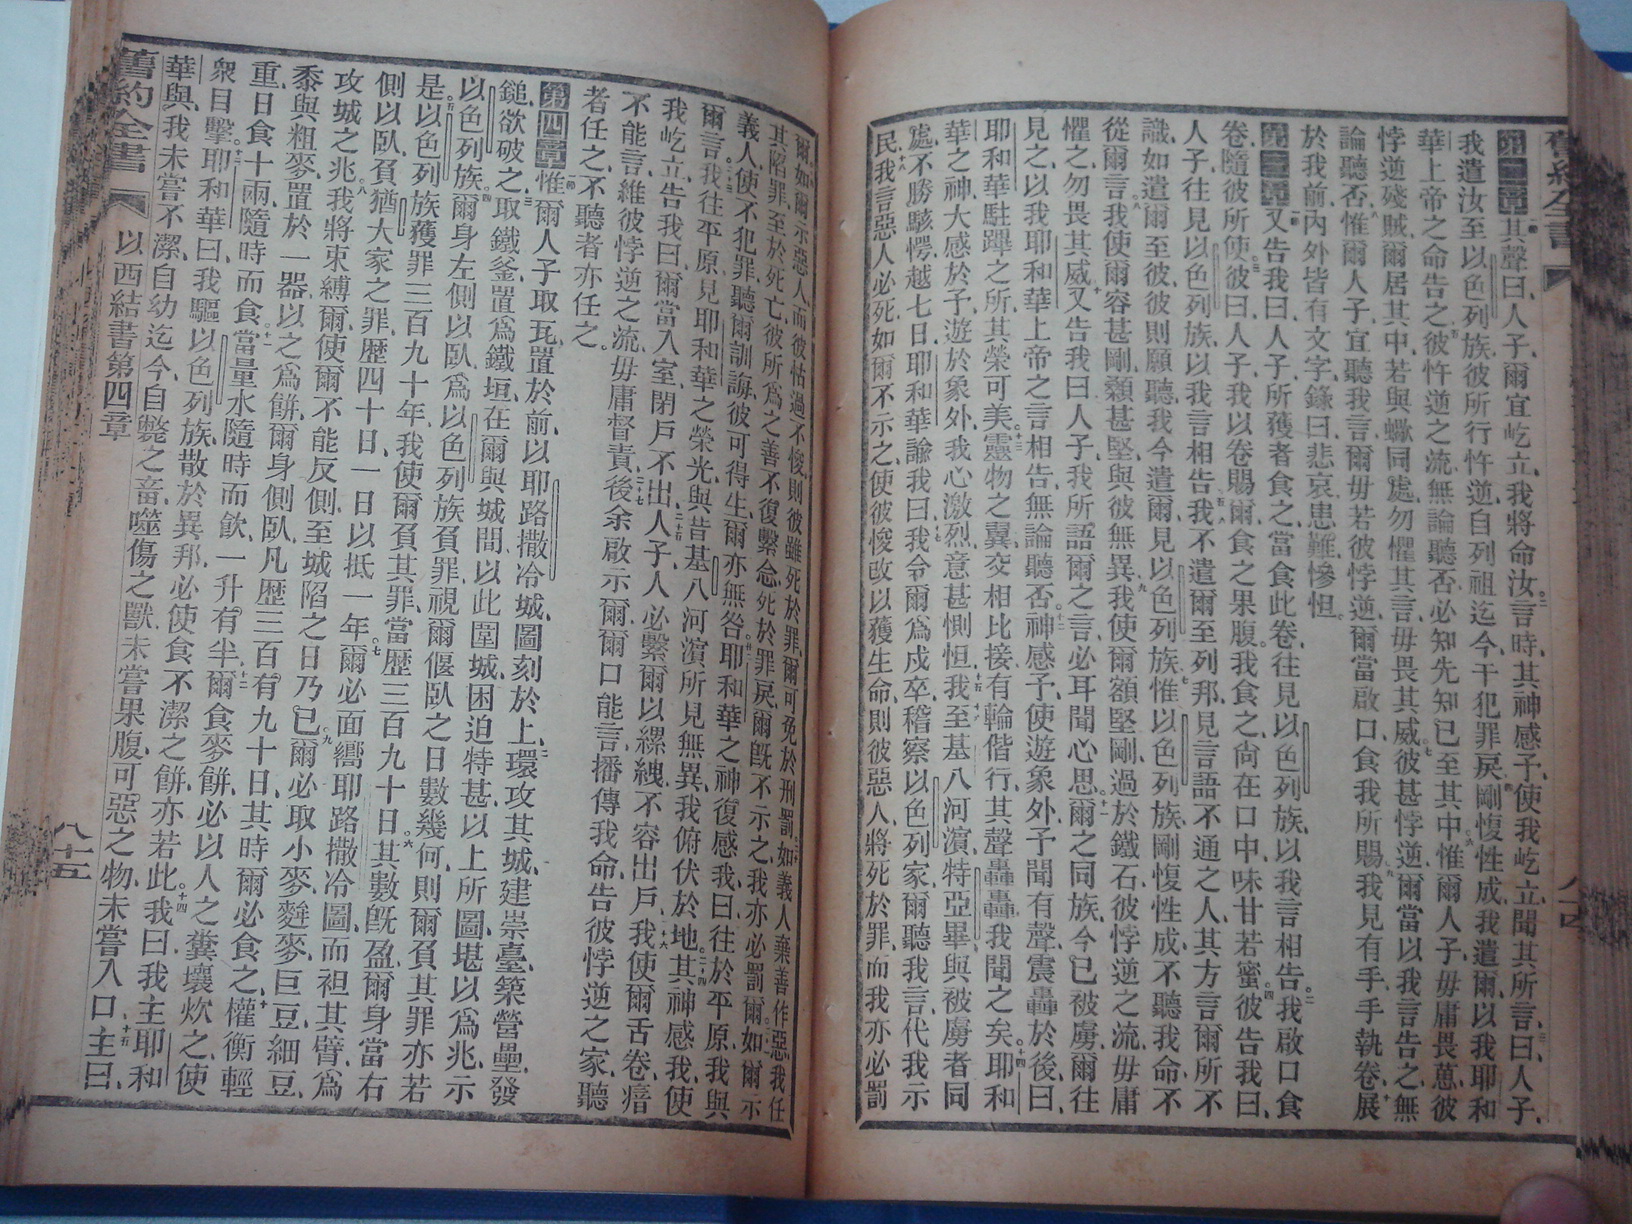 舊約全書
第二章 其聲曰、人子、爾宜屹立、我將命汝、言時、其神感予、使我屹立、聞其所言、曰、人子、
我遣汝至以色列族、彼所行忤逆、自列祖迄今、干犯罪戾、剛愎性成、我遣爾、以我耶和
華上帝之命告之、彼忤逆之流、無論聽否、必知先知已至其中、惟爾人子、毋庸畏葸、彼
悖逆殘賊、爾居其中、若與蠍同處、勿懼其言、毋畏其威、彼甚悖逆、爾當以我言告之、無
論聽否、惟爾人子、宜聽我言、爾毋若彼悖逆、爾當啟口、食我所賜、我見有手、手執卷、展
於我前、內外皆有文字、錄曰、悲哀患難慘怛。
第三章 又告我曰、人子、所獲者食之、當食此卷、往見以色列族、以我言相告、我啟口食
卷、隨彼所使、彼曰、人子、我以卷賜爾、食之果腹、我食之、尚在口中、味甘若蜜、彼告我曰、
人子、往見以色列族、以我言相告、我不遣爾至列邦、見言語不通之人、其方言爾所不
識、如遣爾至彼、彼則願聽、我今遣爾、見以色列族、惟以色列族、剛愎性成、不聽我命、不
從爾言、我使爾容甚剛、顙甚堅、與彼無異、我使爾額堅剛、過於鐵石、彼悖逆之流、毋庸
懼之、勿畏其威、又告我曰、人子、我所語爾之言、必耳聞心思、爾之同族、今已被虜、爾往
見之、以我耶和華上帝之言相告、無論聽否、神感予、使遊象外、予聞有聲、震轟於後、曰、
耶和華駐蹕之所、其榮可美、靈物之翼、交相比接、有輪偕行、其聲轟轟、我聞之矣、耶和
華之神、大感於予、遊於象外、我心激烈、意甚惻怛、我至基八河濱、特亞畢、與被虜者同
處、不勝駭愕、越七日、耶和華諭我曰、我令爾為戍卒、稽察以色列家、爾聽我言、代我示
民、我言惡人必死、如爾不示之、使彼悛改、以獲生命、則彼惡人、將死於罪、而我亦必罰
爾、如爾示惡人、而彼怙過不悛、則彼雖死於罪、爾可免於刑罰、如義人棄善作惡、我任
其陷罪、至於死亡、彼所為之善、不復繫念、死於罪戾、爾既不示之、我亦必罰爾、如爾示
義人、使不犯罪、聽爾訓誨、彼可得生、爾亦無咎、耶和華之神、復感我曰、往於平原、我與
爾言、我往平原、見耶和華之榮光、與昔基八河濱所見無異、我俯伏於地、其神感我、使
我屹立、告我曰、爾當入室、閉戶不出、人子、人必繫爾以縲絏、不容出戶、我使爾舌卷瘖
不能言、維彼悖逆之流、毋庸督責、後余啟示爾、爾口能言、播傳我命、告彼悖逆之家、聽
者任之、不聽者亦任之。
第四章 惟爾人子、取瓦置於前、以耶路撒冷城、圖刻於上、環攻其城、建崇臺、築營壘、發
鎚欲破之、取鐵釜、置為鐵垣、在爾與城間、以此圍城、困迫特甚、以上所圖、堪以為兆、示
以色列族、爾身左側以臥、為以色列族負罪、視爾偃臥之日數幾何、則爾負其罪亦若
是、以色列族獲罪三百九十年、我使爾負其罪、當歷三百九十日、其數既盈、爾身當右
側以臥、負猶大家之罪、歷四十日、一日以抵一年、爾必面嚮耶路撒冷圖、而袒其臂、為
攻城之兆、我將束縛爾、使爾不能反側、至城陷之日乃已、爾必取小麥、麰麥、巨豆、細豆、
黍與粗麥、置於一器、以之為餅、爾身側臥、凡歷三百有九十日、其時爾必食之、權衡輕
重、日食十兩、隨時而食、當量水隨時而飲、一升有半、爾食麥餅、必以人之糞壤炊之、使
衆目擊、耶和華曰、我驅以色列族、散於異邦、必使食不潔之餅、亦若此、我曰、我主耶和
華與、我未嘗不潔、自幼迄今、自斃之畜、噬傷之獸、未嘗果腹、可惡之物、未嘗入口、主曰、
舊約全書 以西結書第四章 八十五